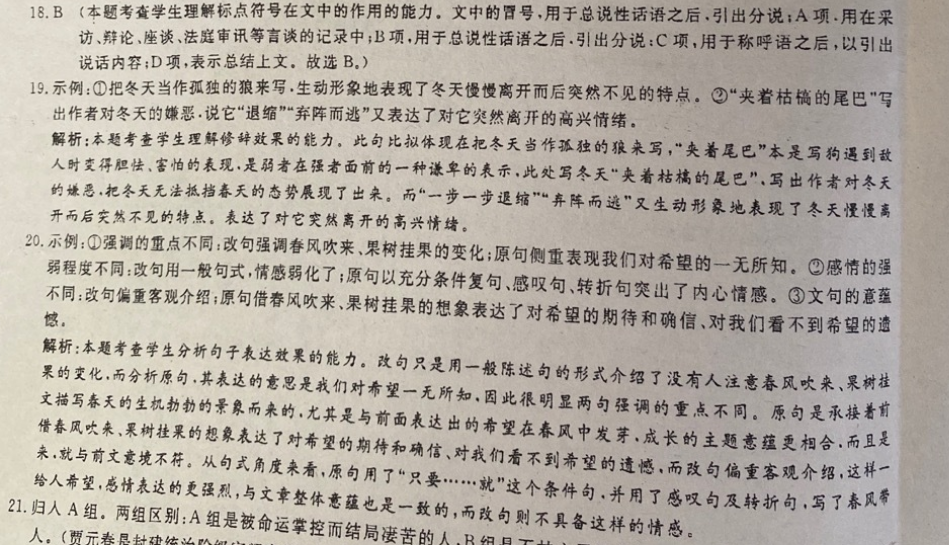 18.B （本题考查学生理解标点符号在文中的作用的能力。文中的冒号,用于总说性话语之后,引出分说;A 项,用在采
访、辩论、座谈、法庭审讯等言谈的记录中;B项,用于总说性话语之后,引出分说;C 项,用于称呼语之后,以引出
说话内容;D项,表示总结上文。故选 B。）
19.示例:①把冬天当作孤独的狼来写,生动形象地表现了冬天慢慢离开而后突然不见的特点。②“夹着枯槁的尾巴”写
出作者对冬天的嫌恶,说它“退缩”“弃阵而逃”又表达了对它突然离开的高兴情绪。
解析:本题考查学生理解修辞效果的能力。此句比拟体现在把冬天当作孤独的狼来写,“夹着尾巴”本是写狗遇到敌
人时变得胆怯、害怕的表现,是弱者在强者面前的一种谦卑的表示,此处写冬天“夹着枯槁的尾巴”,写出作者对冬天
的嫌恶,把冬天无法抵挡春天的态势展现了出来。而“一步一步退缩”“弃阵而逃”又生动形象地表现了冬天慢慢离
开而后突然不见的特点。表达了对它突然离开的高兴情绪。
20.示例:①强调的重点不同:改句强调春风吹来、果树挂果的变化;原句侧重表现我们对希望的一无所知。②感情的强
弱程度不同:改句用一般句式,情感弱化了;原句以充分条件复句、感叹句、转折句突出了内心情感。③文句的意蕴
不同:改句偏重客观介绍;原句借春风吹来、果树挂果的想象表达了对希望的期待和确信、对我们看不到希望的遗
憾。
解析:本题考查学生分析句子表达效果的能力。改句只是用一般陈述句的形式介绍了没有人注意春风吹来、果树挂
果的变化,而分析原句,其表达的意思是我们对希望一无所知,因此很明显两句强调的重点不同。原句是承接着前
文描写春天的生机勃勃的景象而来的,尤其是与前面表达出的希望在春风中发芽,成长的主题意蕴更相合,而且是
借春风吹来、果树挂果的想象表达了对希望的期待和确信、对我们看不到希望的遗憾,而改句偏重客观介绍,这样一
来,就与前文意境不符。从句式角度来看,原句用了“只要……就”这个条件句,并用了感叹句及转折句,写了春风带
给人希望,感情表达的更强烈,与文章整体意蕴也是一致的,而改句则不具备这样的情感。
21.归入 A 组。两组区别:A 组是被命运掌控而结局凄苦的人,B 组是
人。（贾元春是封建统治阶级